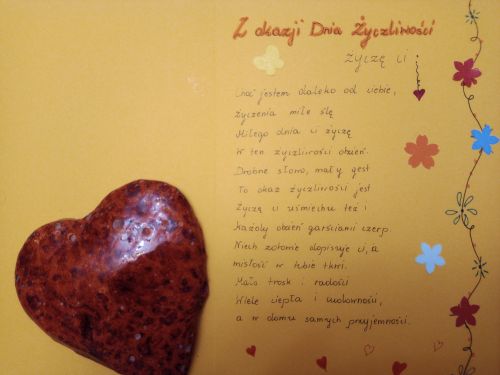 Z okazji Dnia Życzliwości
życzę ci
Choć jestem daleko od ciebie,
życzenia miłe ślę
Miłego dnia ci życzę
W ten życzliwości dzień.
Drobne słowo, mały gest
To okaz życzliwości jest
Życzę ci uśmiechu też i
Każdy dzień garściami czerp
Niech zdrowie dopisuje ci, a
miłość w tobie tkwi.
Mało trosk i radości
Wiele ciepła i cudowności,
a w domu samych przyjemności.